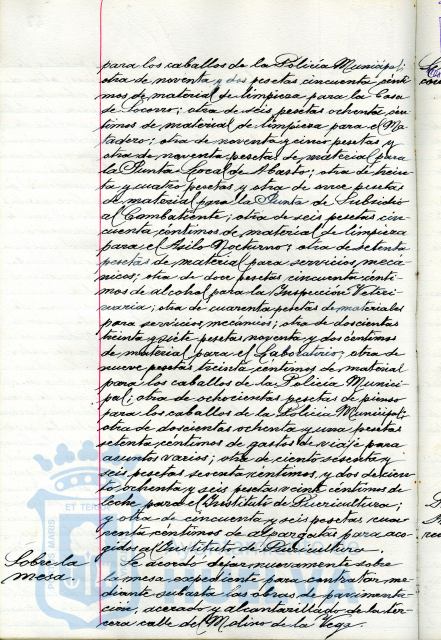 para los caballos de la Policía Municipal;
otra de noventa y dos pesetas cincuenta cénti
mos de material de limpieza para la Casa
de Socorro; otra de seis pesetas ochenta cén
timos de material de limpieza para el Ma
tadero; otra de noventa y cinco pesetas y
otra de noventa pesetas de material para
la Junta Local de Abasto; otra de trein
ta y cuatro pesetas y otra de once pesetas
de material para la Junta de Subsidio
al Combatiente; otra de seis pesetas cin
cuenta céntimos de material de limpieza
para el Asilo Nocturno; otra de setenta
pesetas de material para servicios mecá
nicos; otra de doce pesetas cincuenta cénti
mos de alcohol para la Inspección Veteri
naria; otra de cuarenta pesetas de materiales
para servicios mecánicos; otra de doscientas
treinta y siete pesetas noventa y dos céntimos
de material para el Laboratorio; otra de
nueve pesetas treinta céntimos de material
para los caballos de la Policía Munici
pal; otra de ochocientas pesetas de pienso
para los caballos de la Policía Municipal;
otra de doscientas ochenta y una pesetas
setenta céntimos de gastos de viaje para
asuntos varios; otra de ciento sesenta y
seis pesetas sesenta céntimos, y dos de cien
to ochenta y seis pesetas veinte céntimos de
leche para el Instituto de Puericultura;
y otra de cincuenta y seis pesetas cua
renta céntimos de alpargatas para aco
gidos al Instituto de Puericultura.
Sobre la
mesa.
Se acordó dejar nuevamente sobre
la mesa expediente para contratar me
diante subasta las obras de pavimenta
ción, acerado y alcantarillado de la ter
cera calle del Molino de la Vega.
ET TER
MARIS